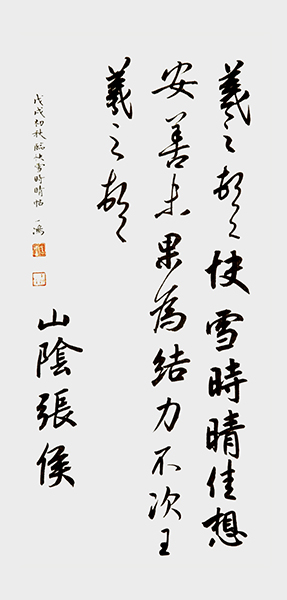 羲之頓首快雪時晴佳想
安善未果為結力不次王
羲之頓首
山陰張侯
戊戌初秋臨快雪時晴帖